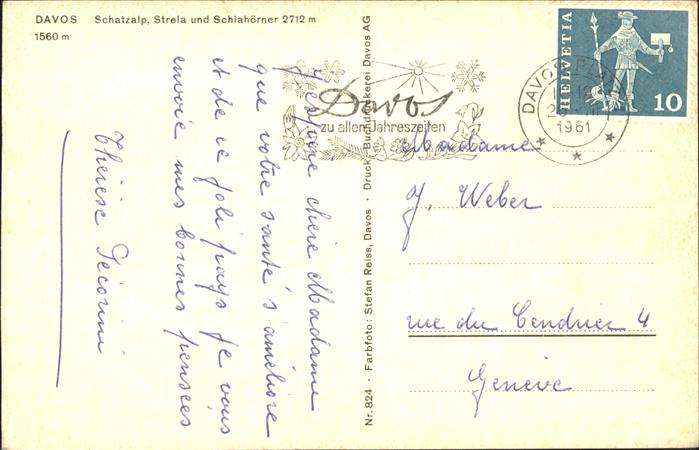 DAVOS Schatzalp, Strela und Schiahörner 2712 m
1560 m
J'espère chère Madame
que votre santé s'améliore
et de ce joli pays je vous
envoie mes bonnes pensées
Thérèse
Nr. 824 · Farbfoto: Stefan Reiss, Davos · Druck: Buchdruckerei Davos AG
Davos
zu allen Jahreszeiten
DAVOS
1961
HELVETIA
10
Madame
J. Weber
rue du Cendrier 4
Genève